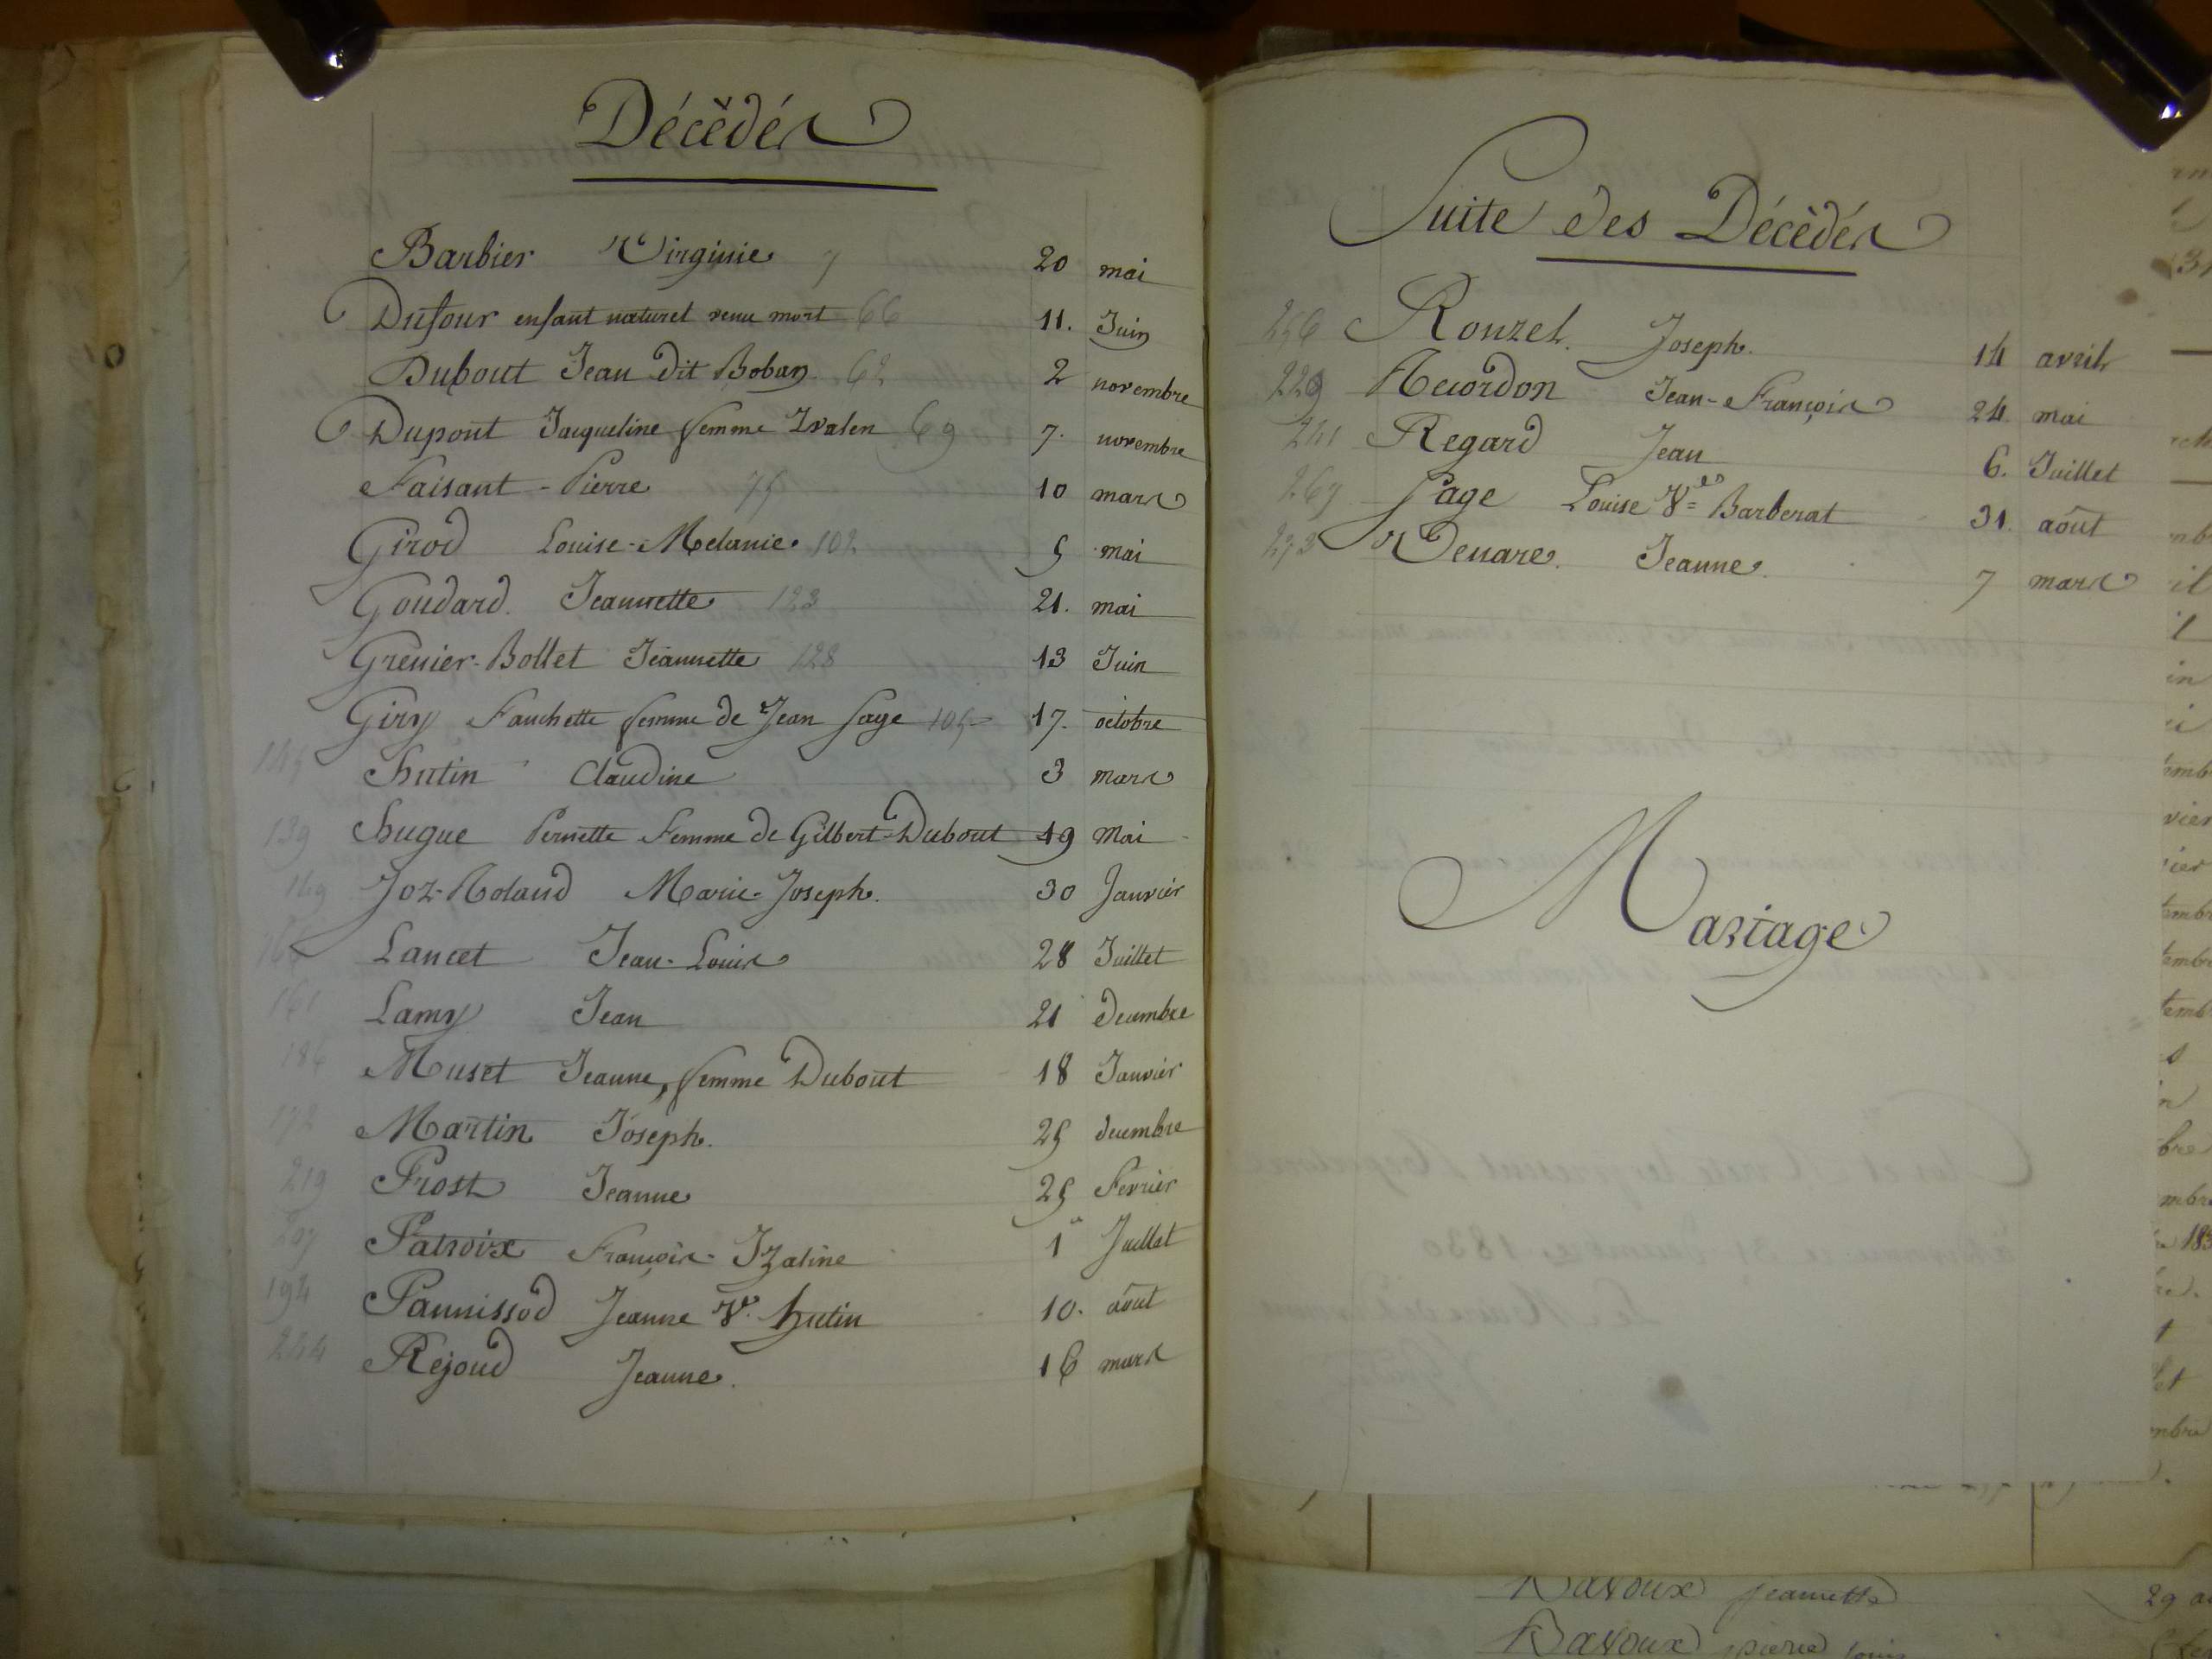 Décèdés
Barbier Virginie 7 20 mai
Dufour enfant naturel venu mort 66 11. Juin
Dubout Jean dit Boban 62 2 novembre
Dupont Jacqueline femme 69 7. novembre
Faisant - Pierre 75 10 mars
Girod Louise-Melanie 102 5 mai
Goudard. Jeannette 123 21. mai
Grenier-Bollet Jeannette 128 13 Juin
Giry Fanchette femme de Jean Sage 105 17. octobre
145 hutin Claudine 3 mars
139 hugue Pernette Femme de Gilbert-Dubout 19 Mai
149 Joz-Roland Marie-Joseph. 30 Janvier
Lancet Jean-Louis 28 Juillet
161 Lamy Jean 21 Decembre
186 Muset Jeanne, femme Dubout 18 Janvier
172 Martin Joseph. 25 decembre
219 Prost Jeanne 25 Fevrier
207 Patroix François- 1er Juillet
194 Pannissod Jeanne Ve. hutin 10. août
234 Rejoud Jeanne. 16 mars
Suite des Décèdés
256 Rouzet. Joseph. 14 avril
229 Recordon Jean-François 24. mai
241 Regard Jean 6. Juillet
267 Sage Louise Ve Barberat 31. août
273 Venare. Jeanne. 7 mars
Mariage
Bavoux jeannette 29
Bavoux pierre louis